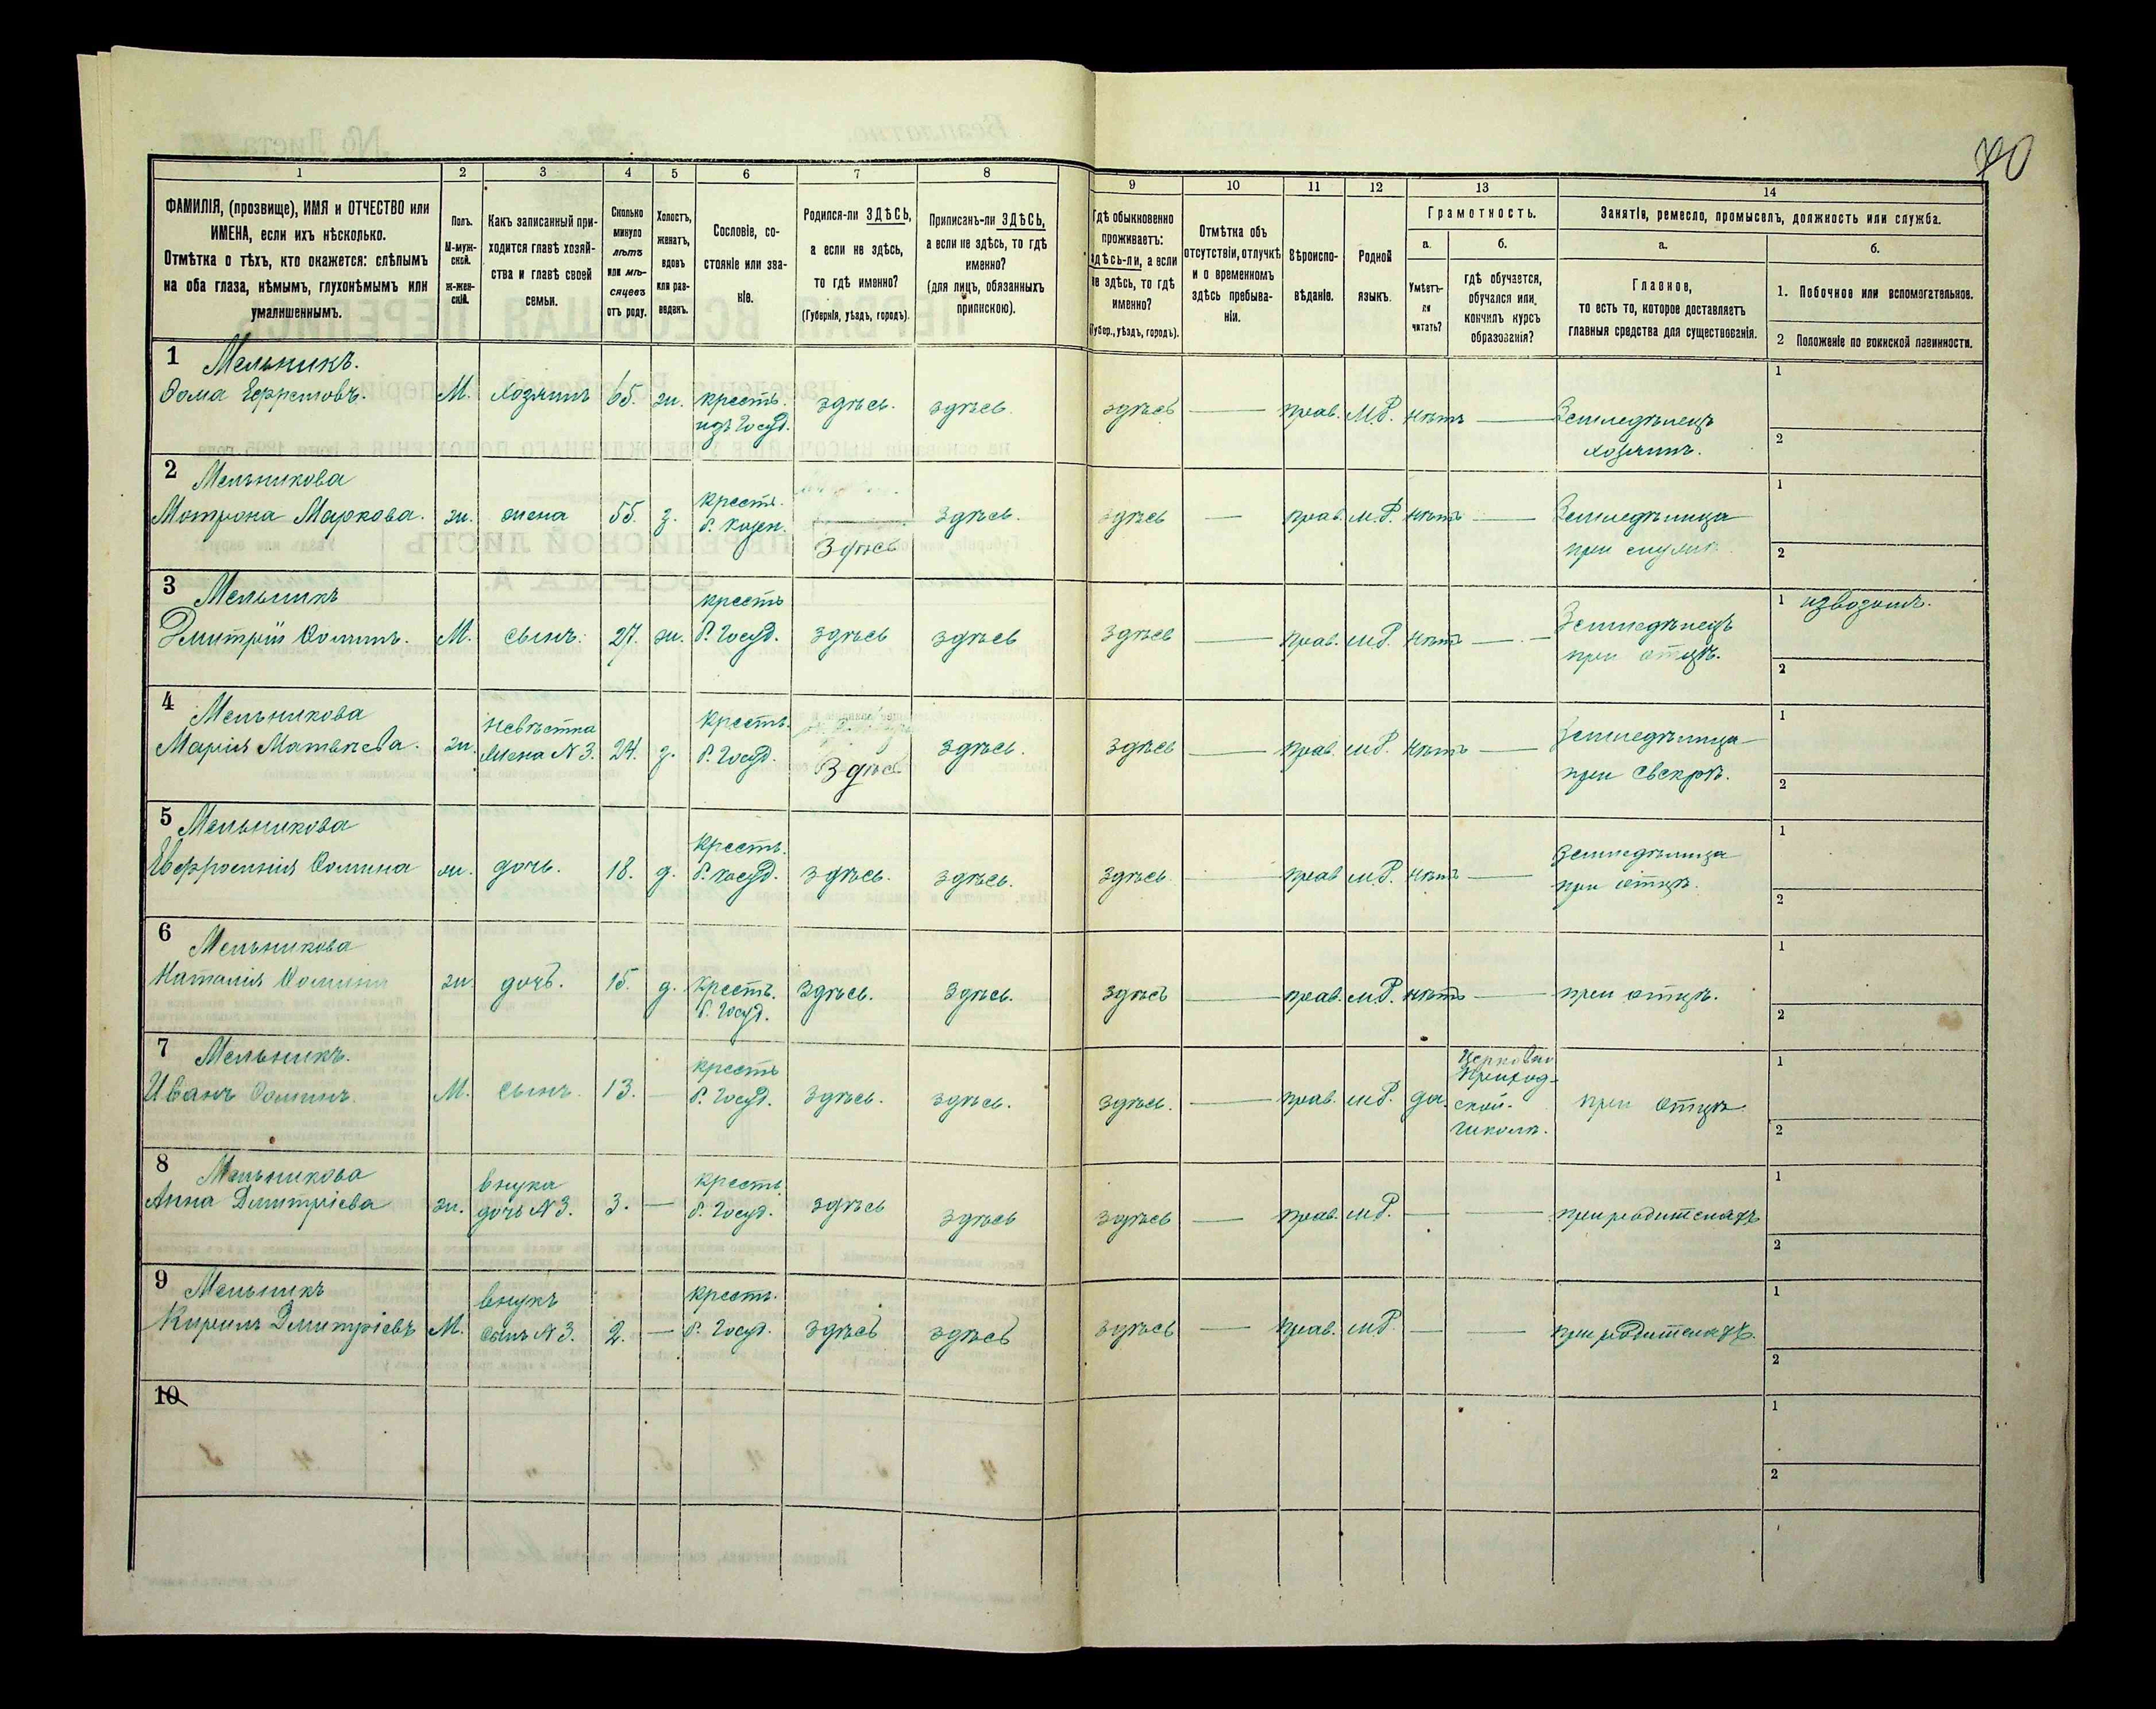 70
1
2
3
4
5
6
7
8
9
10
11
12
13
14
ФАМИЛІЯ, (прозвище), ИМЯ и ОТЧЕСТВО или
ИМЕНА, если ихъ нѣсколько.
Отмѣтка о тѣхъ, кто окажется: слѣпымъ
на оба глаза, нѣмымъ, глухонѣмымъ или
умалишеннымъ.
Полъ.
М-муж-
ской.
ж-жен-
скій.
Какъ записанный при-
ходится главѣ хозяй-
ства и главѣ своей
семьи.
Сколько
минуло
лѣтъ
или мѣ-
сяцевъ
отъ роду.
Холостъ,
женатъ,
вдовъ
или раз-
веденъ.
Сословіе, со-
стояніе или зва-
ніе.
Родился-ли ЗДѢСЬ,
а если не здѣсь,
то гдѣ именно?
(Губернія, уѣздъ, городъ).
Приписанъ-ли ЗДѢСЬ,
а если не здѣсь, то гдѣ
именно?
(для лицъ, обязанныхъ
припискою).
Гдѣ обыкновенно
проживаетъ:
здѣсь-ли, а если
не здѣсь, то гдѣ
именно?
(Губер., уѣздъ, городъ).
Отмѣтка объ
отсутствіи, отлучкѣ
и о временномъ
здѣсь пребыва-
ніи.
Вѣроиспо-
вѣданіе.
Родной
языкъ.
Грамотность.
а.
Умѣетъ-
ли
читать?
б.
гдѣ обучается,
обучался или
кончилъ курсъ
образованія?
Занятіе, ремесло, промыселъ, должность или служба.
а.
Главное,
то есть то, которое доставляетъ
главныя средства для существованія.
б.
1. Побочное или вспомогательное.
2 Положеніе по воинской повинности.
1 Мельникъ.
Ѳома Ефремовъ. М. хозяинъ 65. ж. крестъ. здѣсь. здѣсь. здѣсь — прав. М.Р. нѣтъ — Земледѣлецъ 1
изъ Госуд. хозяинъ. 2
2 Мельникова
Мотрона Маркова. ж. жена 55. з. крестъ. Здѣсь здѣсь. здѣсь — прав. м.Р. нѣтъ — Земледѣлица 1
б. при 2
3 Мельникъ
Дмитрій Ѳоминъ. М. сынъ. 27. ж. крестъ здѣсь здѣсь здѣсь — прав. м.Р. нѣтъ — Земледѣлецъ 1 извозомъ.
б. Госуд. при отцѣ. 2
4 Мельникова
Марія Матвѣева. ж. невѣстка 24. з. крестъ. Здѣсь здѣсь. здѣсь — прав. м.Р. нѣтъ — Земледѣлица 1
жена N 3. б. Госуд. при свекрѣ. 2
5 Мельникова
Евфросинія Ѳомина ж. дочь. 18. д. крестъ. здѣсь. здѣсь. здѣсь — прав м.Р. нѣтъ — Земледѣлица 1
б. Госуд. при отцѣ. 2
6 Мельникова
Наталія Ѳомина ж. дочь. 15. д. крестъ. здѣсь. здѣсь. здѣсь — прав. м.Р. нѣтъ — при отцѣ. 1
б. Госуд. 2
7 Мельникъ.
Иванъ Ѳоминъ. М. сынъ. 13. — крестъ здѣсь. здѣсь. здѣсь. — прав. м.Р. да. Церковно при отцѣ. 1
б. Госуд. Приход- 2
ской.
школѣ.
8 Мельникова
Анна Дмитріева ж. внука 3. — крестъ. здѣсь здѣсь здѣсь — прав. м.Р. — — при родителяхъ 1
дочь N 3. б. Госуд. 2
9 Мельникъ
Кирилъ Дмитріевъ М. внукъ 2. — крестъ. здѣсь здѣсь здѣсь — прав. м.Р. — — при родителяхъ. 1
сынъ N 3. б. Госуд. 2
10 1
2